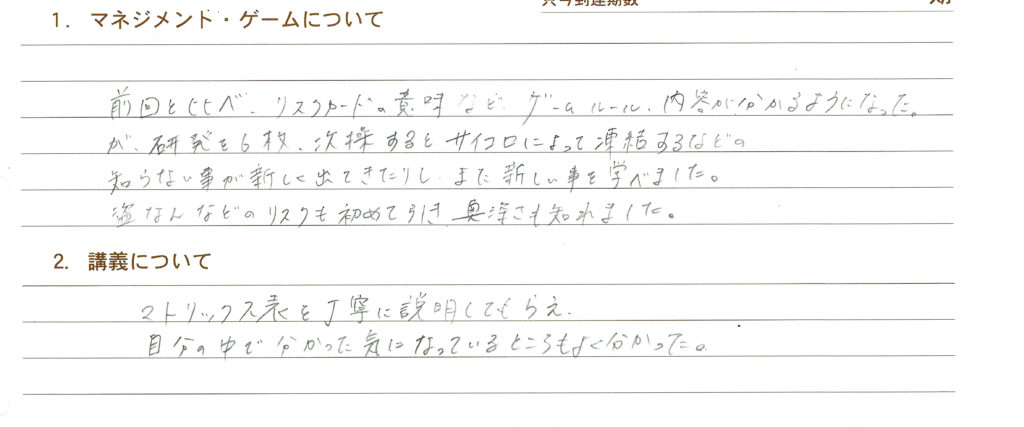 只今到達期数 期
1. マネジメント・ゲームについて
前回とくらべ、リスクカードの意味など、ゲームルール、内容が分かるようになった。
が、研究を6枚、次操するとサイコロによって凍結するなどの
知らない事が新しく出てきたりし、また新しい事を学べました。
盗なんなどのリスクも初めて引き、奥深さも知れました。
2. 講義について
マトリックス表を丁寧に説明してもらえ、
自分の中で分かった気になっているところもよく分かった。